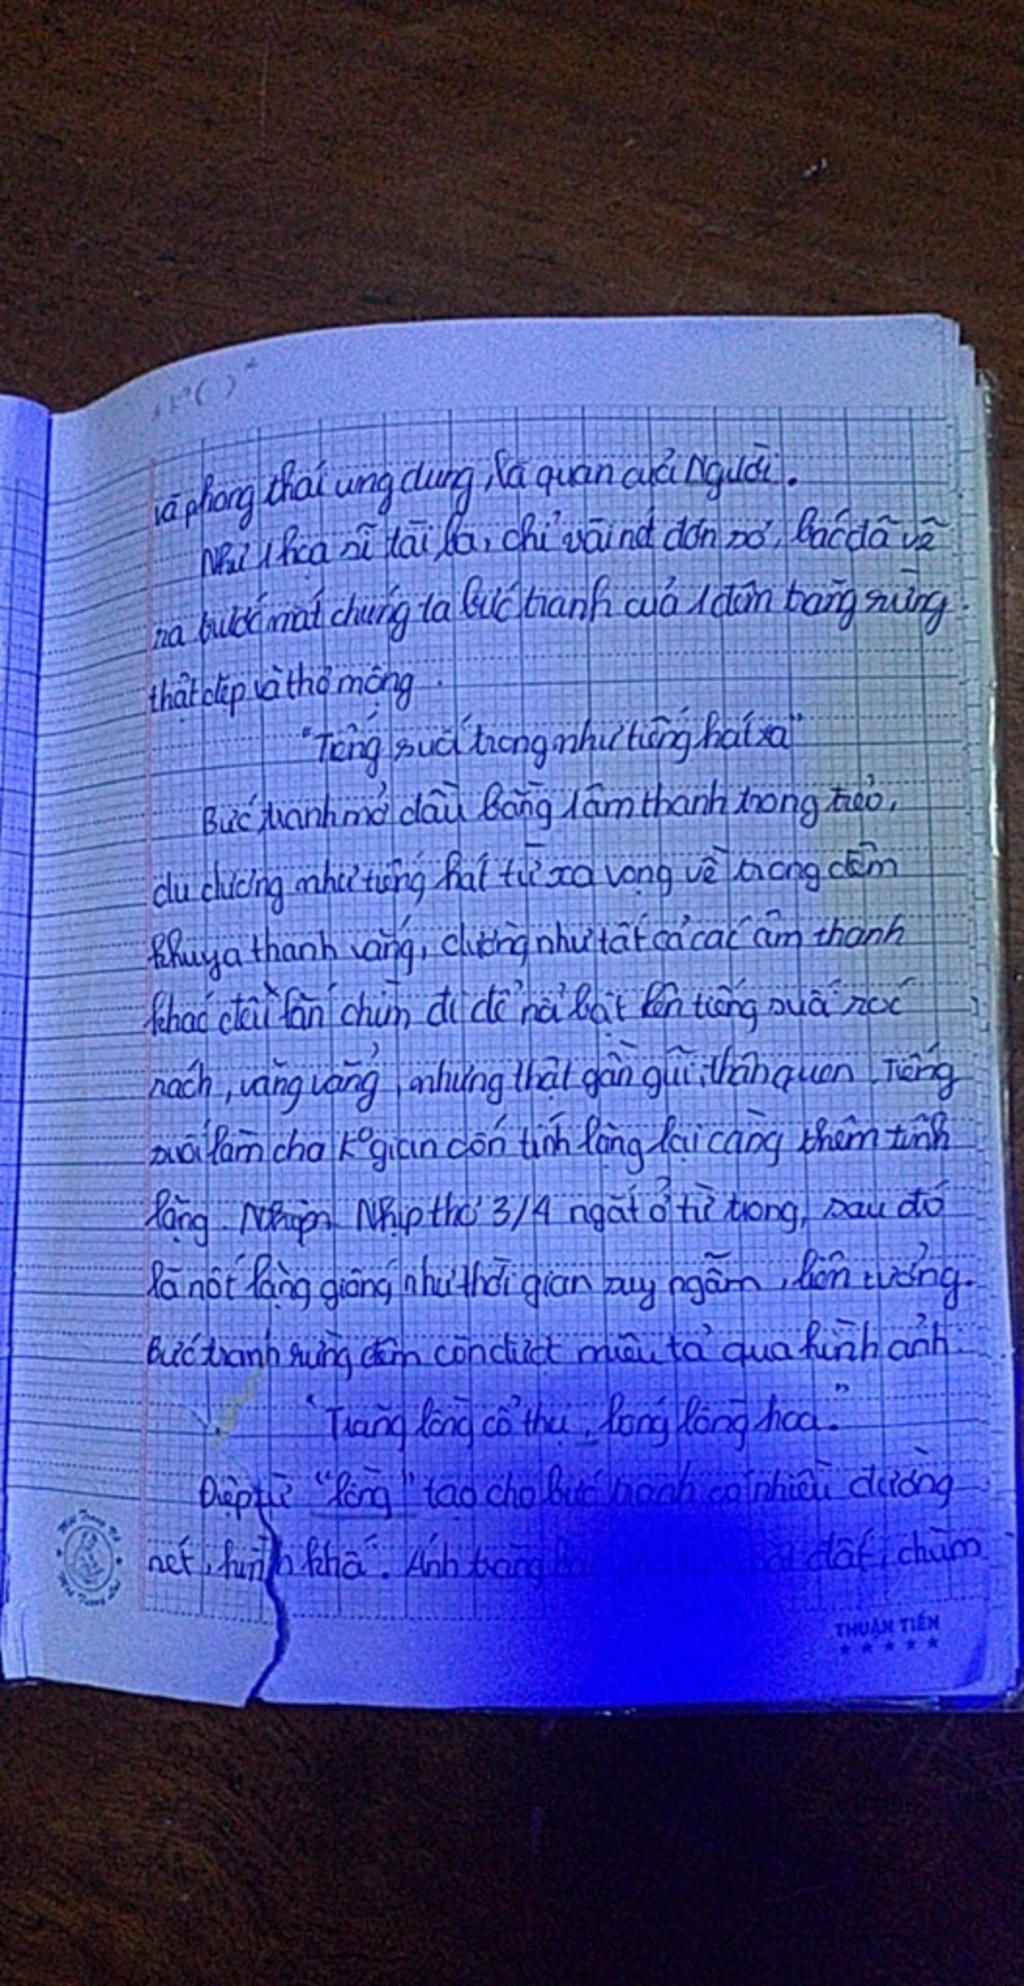 và phong thái ung dung, lạc quan của Người.
Như 1 họa sĩ tài ba, chỉ vài nét đơn sơ, Bác đã vẽ
ra trước mắt chúng ta bức tranh của 1 đêm trăng rừng
thật đẹp và thơ mộng.
"Tiếng suối trong như tiếng hát xa"
Bức tranh mở đầu bằng 1 âm thanh trong trẻo,
du dương như tiếng hát từ xa vọng về trong đêm
khuya thanh vắng, dường như tất cả các âm thanh
khác đều lắn chìm đi để nổi bật lên tiếng suối róc
rách, văng vẳng, nhưng thật gần gũi, thân quen. Tiếng
suối làm cho k° gian còn tĩnh lặng lại càng thêm tĩnh
lặng. Nhịp thơ 3/4 ngắt ở từ trong, sau đó
là nốt lặng giống như thời gian suy ngẫm, liên tưởng.
Bức tranh rừng đêm còn được miêu tả qua hình ảnh
"Trăng lồng cổ thụ, bóng lồng hoa."
Điệp từ "lồng" tạo cho bức tranh có nhiều đường
nét, hình khối. Ánh trăng đất, chùm
THUẬN TIẾN